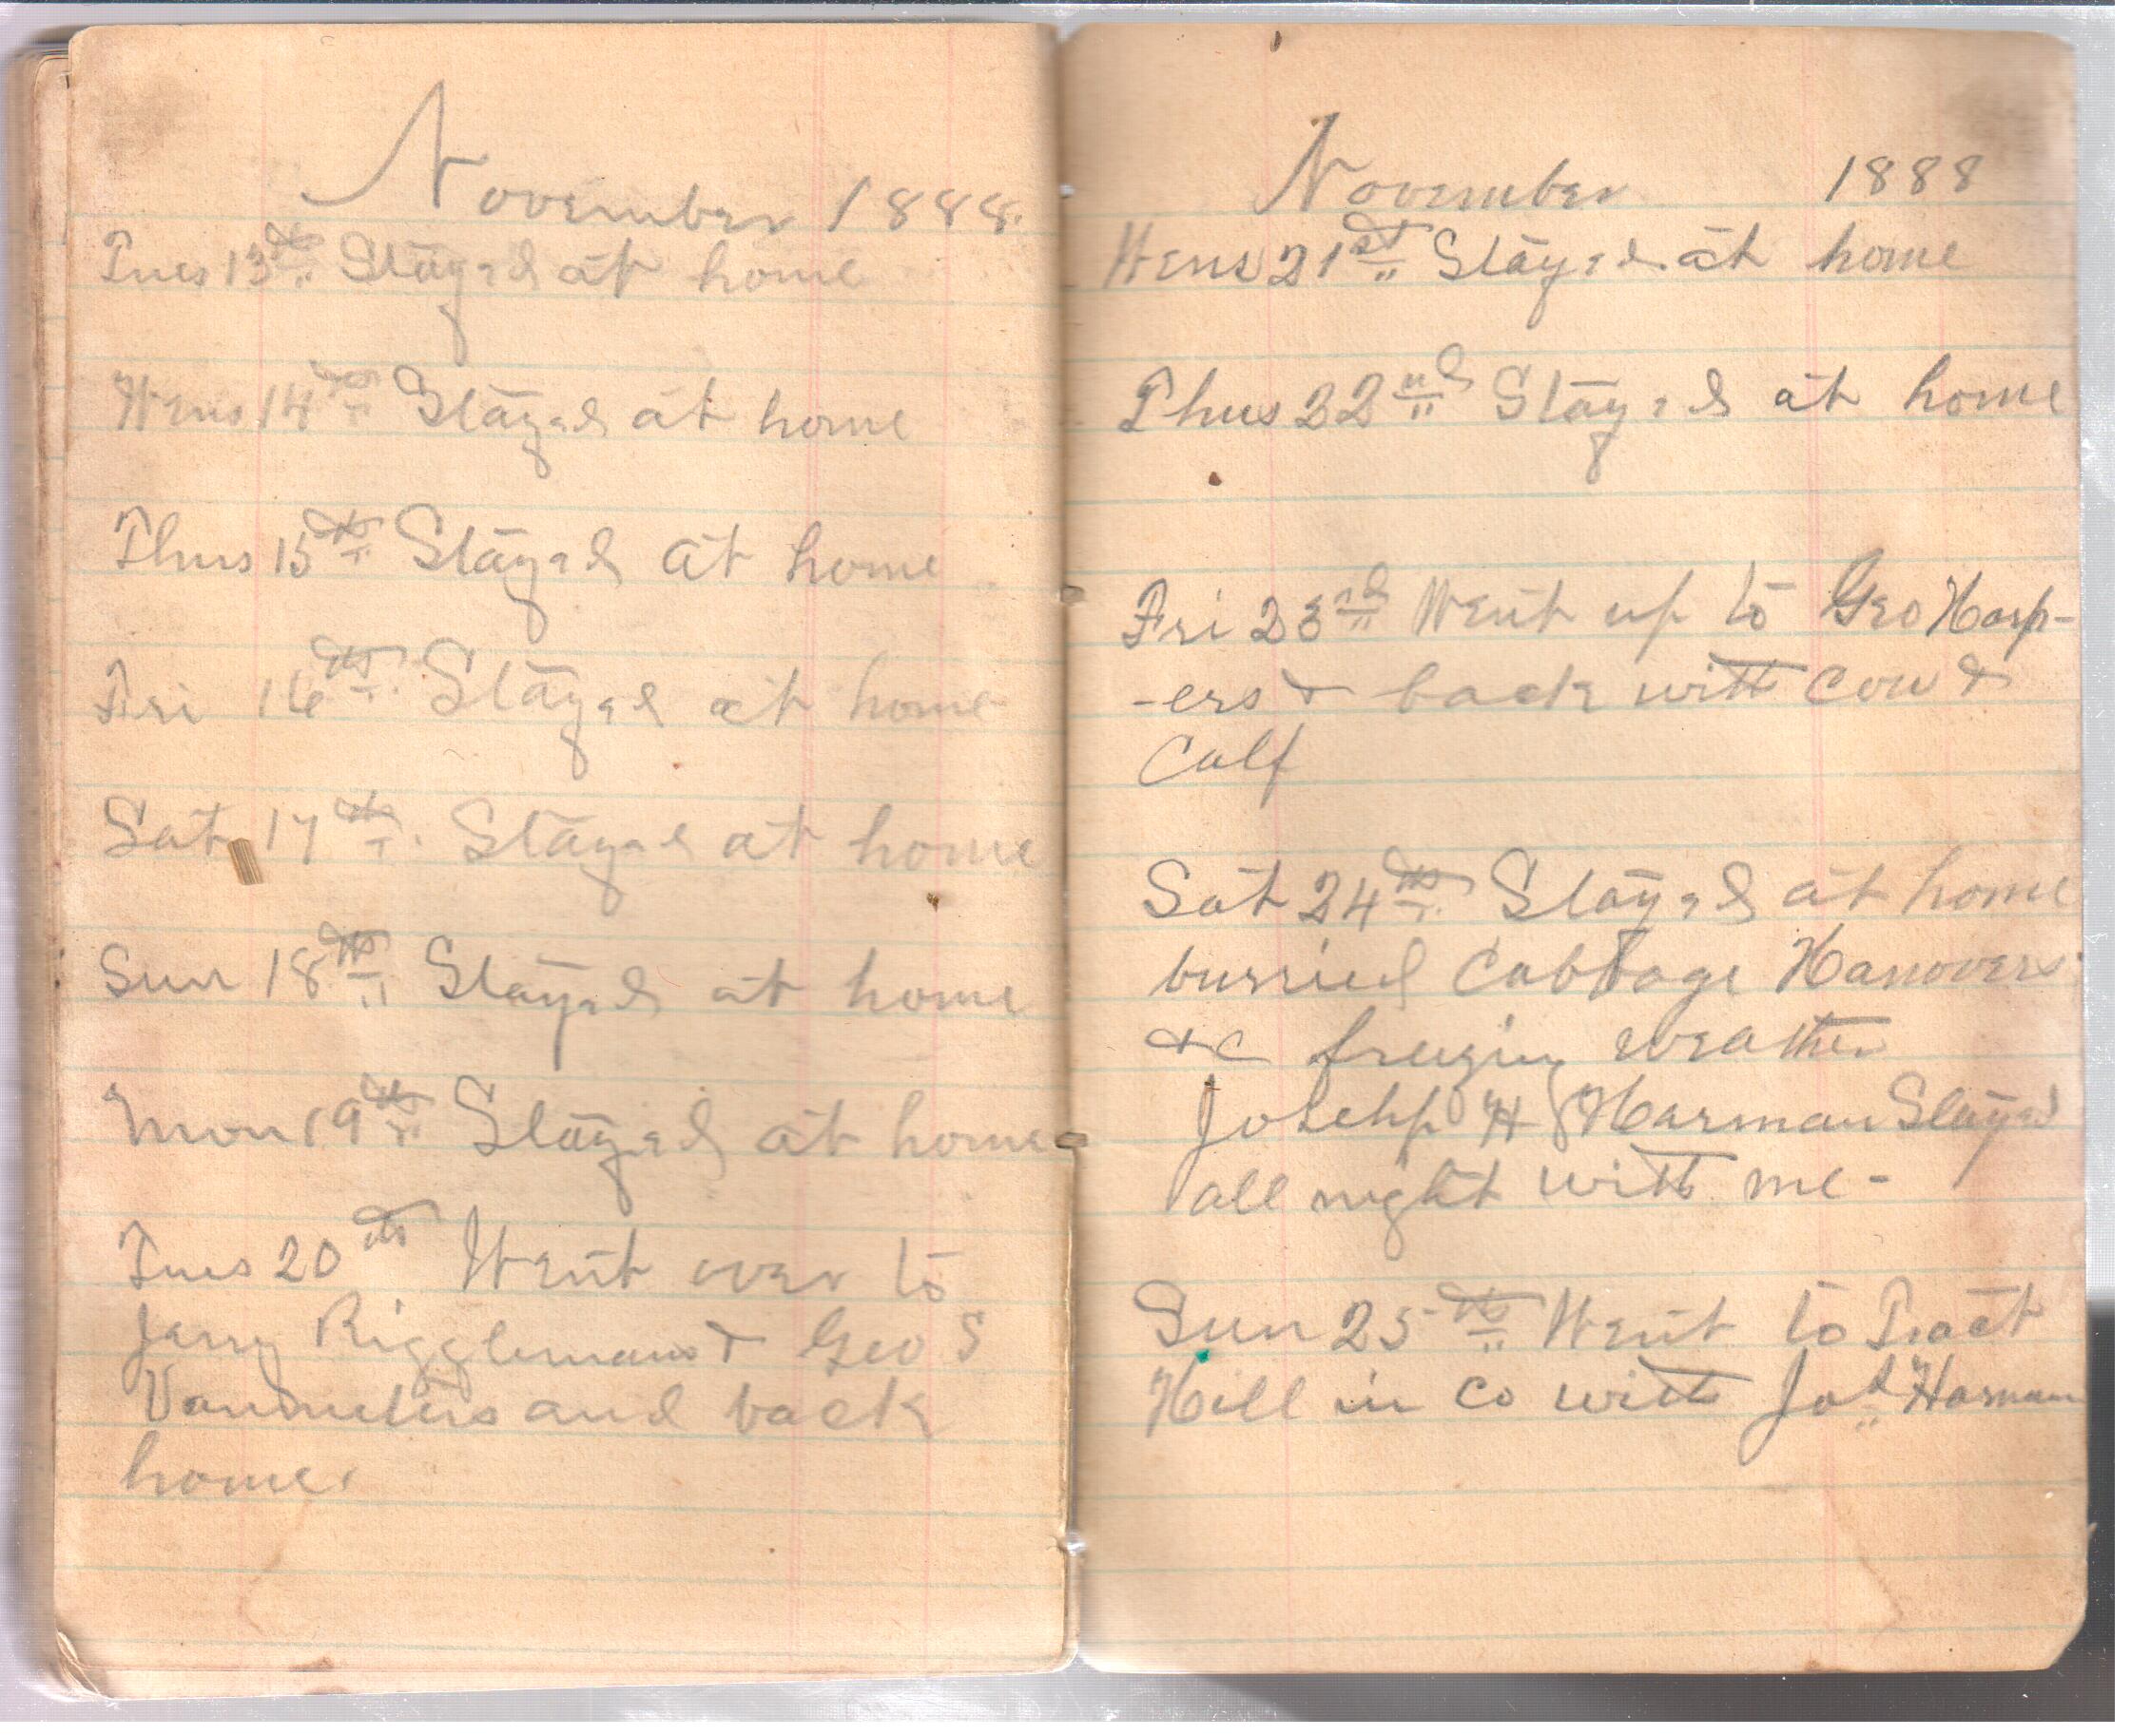 November 1888.
Tues 13th Stayed at home
Wens 14th Stayed at home
Thus 15th Stayed at home
Fri 16th Stayed at home
Sat 17th Stayed at home
Sun 18th Stayed at home
Mon 19th Stayed at home
Tues 20th Went over to
Jerry Rigglemans & Geo S
Vanmeters and back
home.
November 1888
Wens 21st Stayed at home
Thus 22nd Stayed at home
Fri 23rd Went up to Geo Harp-
-ers & back with cow &
Calf
Sat 24th Stayed at home
burried Cabbage Hanovers
&c freezing weather
Josehp H Harman Stayed
all night with me -
Sun 25th Went to Tract
Hill in co with Jos Harman